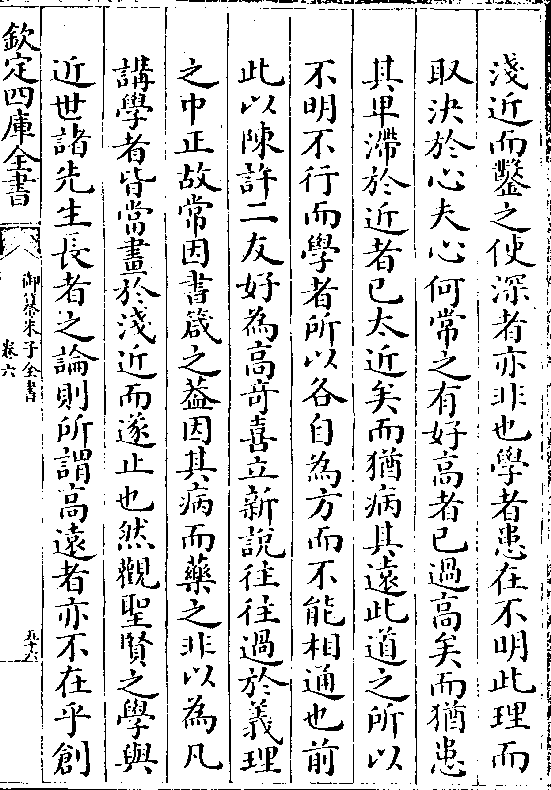 淺近而鑿之使深者亦非也學者患在不明此理而
取決於心夫心何常之有好高者已過高矣而猶患
其卑滯於近者已太近矣而猶病其遠此道之所以
不明不行而學者所以各自為方而不能相通也前
此以陳許二友好為高竒喜立新說往往過於義理
之中正故常因書箴之葢因其病而藥之非以為凡
講學者皆當畫於淺近而遂止也然觀聖賢之學與
近世諸先生長者之論則所謂高遠者亦不在乎創
欽定四庫全書
御纂朱子全書
卷六